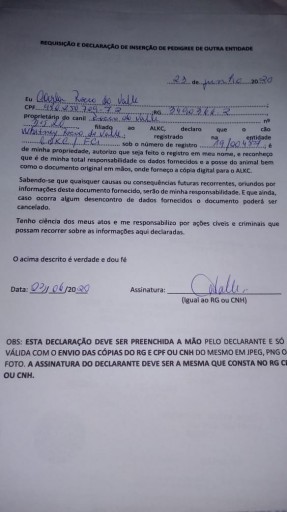 REQUISIÇÃO E DECLARAÇÃO DE INSERÇÃO DE PEDIGREE DE OUTRA ENTIDADE
23 de junho 2020
Eu do Valle
CPF RG
proprietário do canil do Valle nº
filiado ao ALKC, declaro que o cão
do Valle registrado na entidade
CBKC / FCI sob o número de registro e
de minha propriedade, autorizo que seja feito o registro em meu nome, e reconheço
que é de minha total responsabilidade os dados fornecidos e a posse do animal bem
como o documento original em mãos, onde forneço a cópia digital para o ALKC.
Sabendo-se que quaisquer causas ou consequências futuras recorrentes, oriundos por
informações deste documento fornecido, serão de minha responsabilidade. E que ainda,
caso ocorra algum desencontro de dados fornecidos o documento poderá ser
cancelado.
Tenho ciência dos meus atos e me responsabilizo por ações cíveis e criminais que
possam recorrer sobre as informações aqui declaradas.
O acima descrito é verdade e dou fé
Data: /2020 Assinatura: Valle
(Igual ao RG ou CNH)
OBS: ESTA DECLARAÇÃO DEVE SER PREENCHIDA A MÃO PELO DECLARANTE E SÓ
VÁLIDA COM O ENVIO DAS CÓPIAS DO RG E CPF OU CNH DO MESMO EM JPEG, PNG O
FOTO. A ASSINATURA DO DECLARANTE DEVE SER A MESMA QUE CONSTA NO RG
OU CNH.